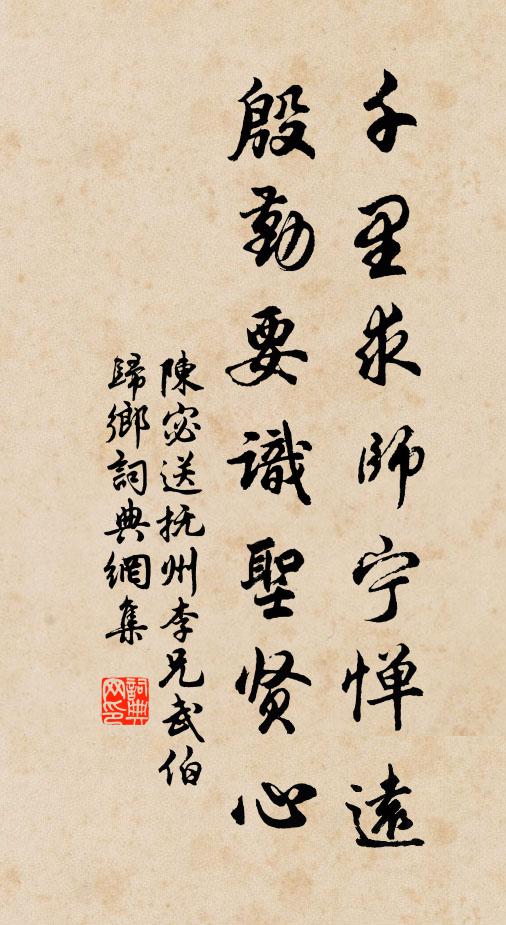 千里求師宁惮遠
殷勤要識聖贤心
陳宓送抚州李兄武伯
歸鄉詞典網集
詞典网印